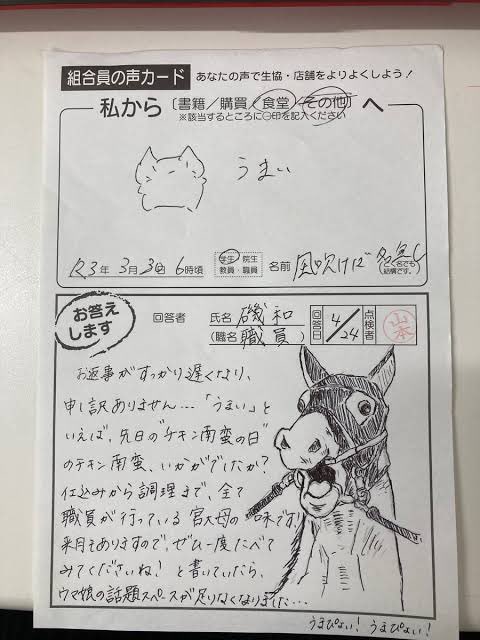 組合員の声カード あなたの声で生協・店舗をよりよくしよう！
私から〔書籍／購買／食堂／その他〕へ
※該当するところに○印を記入ください
うまい
R3年 3月3日 6時頃
学生 院生
教員・職員
名前 風吹けば名無し
匿名でも
結構です。
お答えします
回答者
氏名 磯和
(職名 職員)
回答日 4/24
点検者 山本
お返事がすっかり遅くなり、
申し訳ありません…「うまい」と
いえば、先日の"チキン南蛮の日"
のチキン南蛮、いかがでしたか?
仕込みから調理まで、全て
職員が行っている宮大母の味です!
来月もありますので、ぜひ一度たべて
みてくださいね! と書いていたら、
ウマ娘の話題スペースが足りなくなりました…
うまぴょい! うまぴょい!